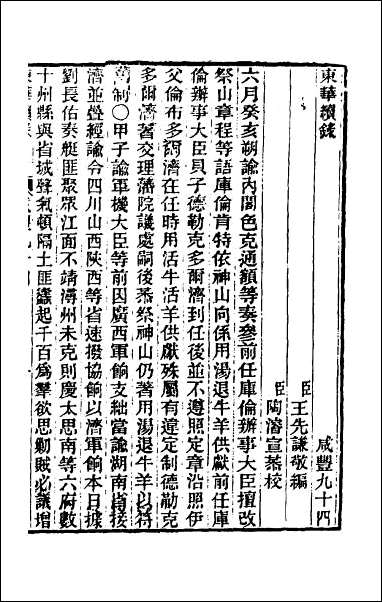 東華續錄
咸豐九十四
臣王先謙敬編
臣陶濬宣恭校
六月癸亥朔諭內閣色克通額等奏參前任庫倫辦事大臣擅改
祭山章程等語庫倫肯特依神山向係用湯退牛羊供獻前任庫
倫辦事大臣貝子德勒克多爾濟到任後並不遵照定章沿照伊
父倫布多爾濟在任時用活牛活羊供獻殊屬有違定制德勒克
多爾濟著交理藩院議處嗣後悉祭神山仍著用湯退牛羊以符
舊制〇甲子諭軍機大臣等前因廣西軍餉支絀當諭湖南省接
濟並疊經諭令四川山西陝西等省速撥協餉以濟軍餉本日據
劉長佑奏艇匪聚眾江面不靖潯州未克則慶太思南等六府數
十州縣與省城聲氣頓隔土匪蠭起千百爲羣欲思勦賊必議增